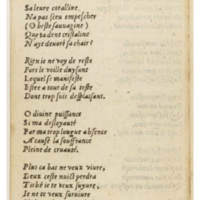 Sa leure coralline.
Na pas sieu empescher
(O beste sauuagine)
Que ta dent cristaline
N'aye deuoré sa chair?
Rien ie ne voy de reste
Fors le voille duysant
Lequel si manifeste
Estre a tour de sa teste
Dont trop suis desplaisant.
O diuine puissance
Si ma desloyauté
Par ma trop longue absence
A causé la souffrance
Pleine de cruauté.
Plus ca bas ne veux viure,
Deux ceste nuict perdra
Tisbé ie te veux suyure,
Ie ne te veux suruiure